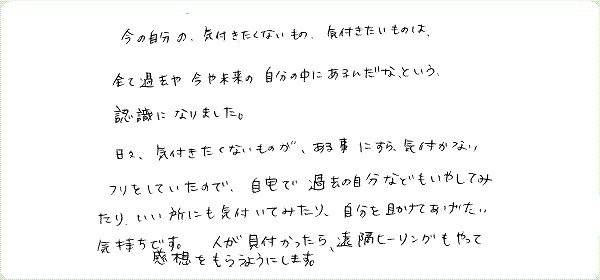 今の自分の、気付きたくないもの、気付きたいものは、
全て過去や今や未来の自分の中にあるんだな、という、
認識になりました。
日々、気付きたくないものが、ある事にすら、気付かない
フリをしていたので、自宅で過去の自分などもいやしてみ
たり、いい所にも気付いてみたり、自分を助けてあげたい
気持ちです。 人が見付かったら、遠隔ヒーリングもやって
感想をもらうようにします。